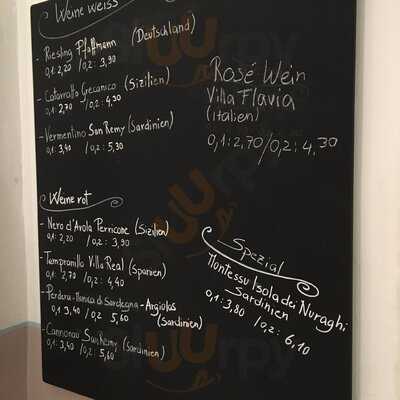 Weine weiss
- Riesling Pfaffmann (Deutschland)
0,1: 2,20 / 0,2: 3,90
- Catarratto Grecanico (Sizilien)
0,1: 2,70 / 0,2: 4,30
- Vermentino San Remy (Sardinien)
0,1: 3,40 / 0,2: 5,30
Rosé Wein
Villa Flavia
(Italien)
0,1: 2,70 / 0,2: 4,30
Weine rot
- Nero d'Avola Perricone (Sizilien)
0,1: 2,20 / 0,2: 3,90
- Tempranillo Villa Real (Spanien)
0,1: 2,70 / 0,2: 4,40
- Perdera - Monica di Sardegna - Argiolas
0,1 3,40 / 0,2 5,60 (Sardinien)
- Cannonau San Remy (Sardinien)
0,1: 3,40 / 0,2: 5,60
Spezial
Montessu Isola dei Nuraghi
Sardinien
0,1: 3,80 / 0,2: 6,10